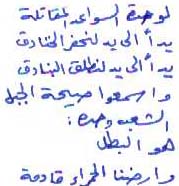 لوحدة السواعد المقاتلة
يداً الى يد لنحفر الخنادق
يداً الى يد لنطلق البنادق
واسمعوا صيحة الجبل
الشعب وحده :
هو البطل
وارضنا الحمراء قادمة